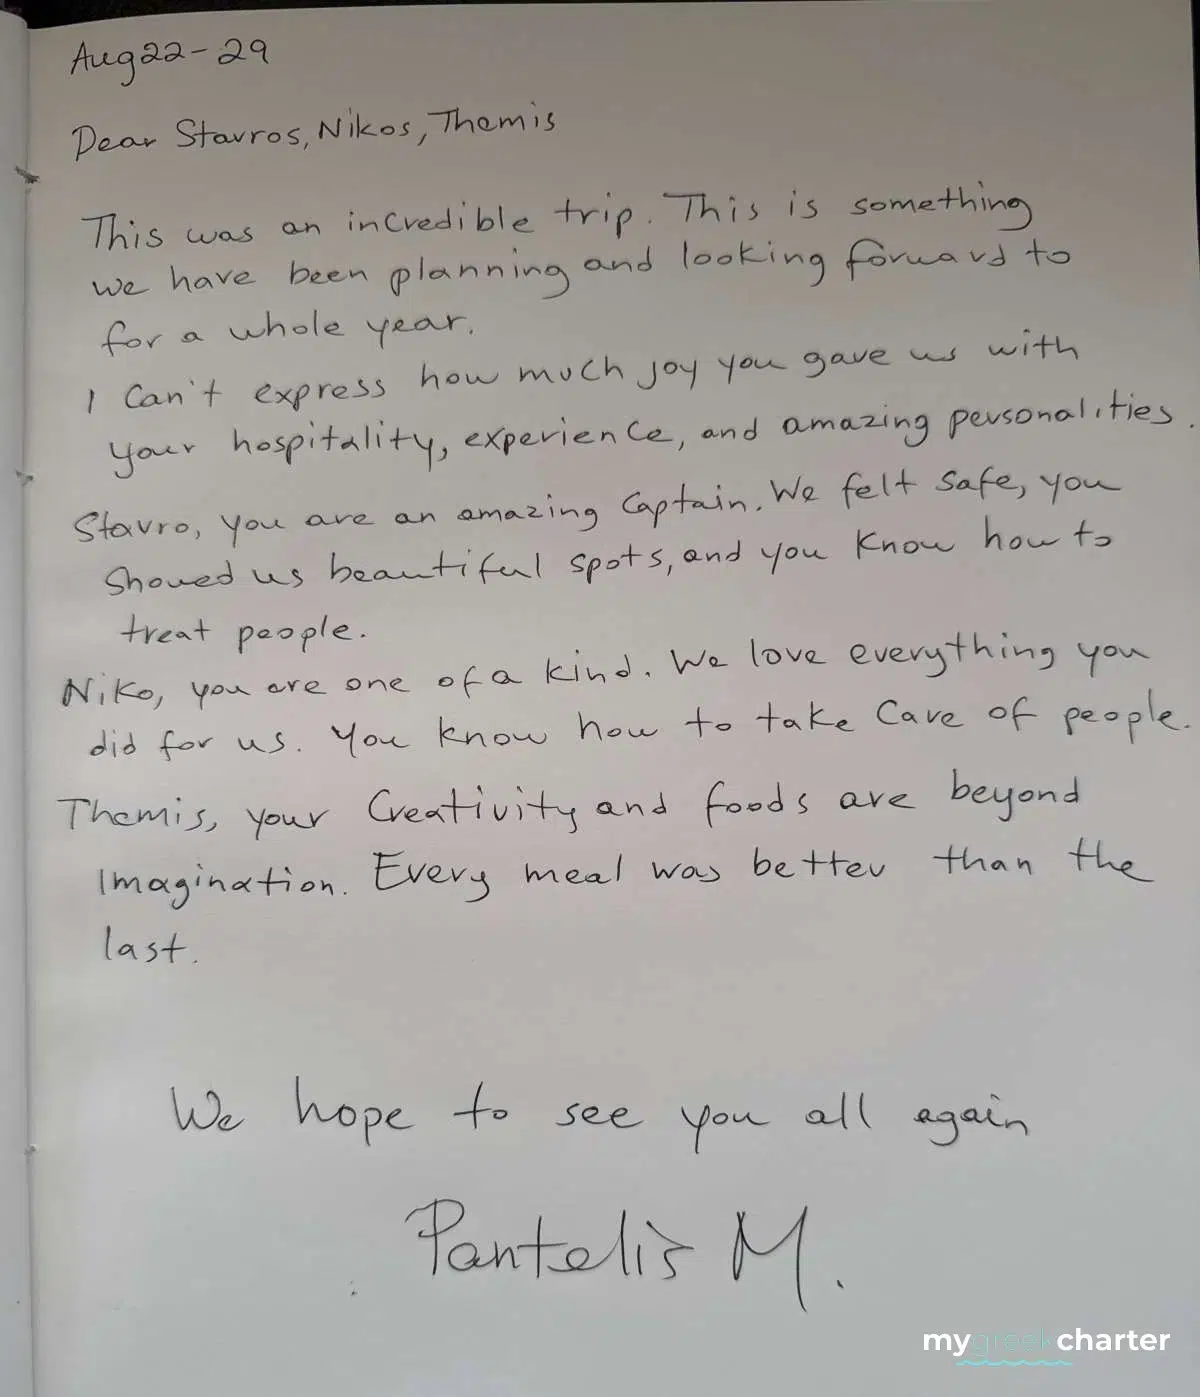 Aug 22 - 29
Dear Stavros, Nikos, Themis
This was an incredible trip. This is something
we have been planning and looking forward to
for a whole year.
I can't express how much joy you gave us with
your hospitality, experience, and amazing personalities.
Stavro, you are an amazing Captain. We felt safe, you
showed us beautiful spots, and you know how to
treat people.
Niko, you are one of a kind. We love everything you
did for us. You know how to take care of people.
Themis, your creativity and foods are beyond
imagination. Every meal was better than the
last.
We hope to see you all again
Pantelis M.
mygreekcharter